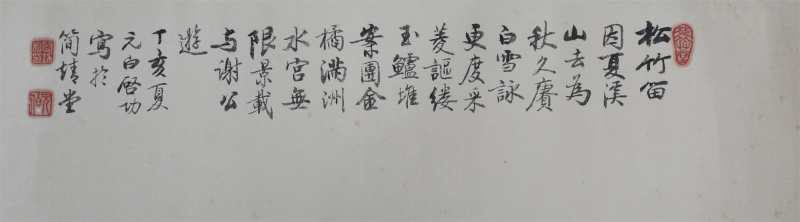 松竹留
因夏溪
山去為
秋久賡
白雪詠
更度采
菱謳縷
玉鱸堆
案團金
橘滿洲
水宮無
限景載
与謝公
遊
丁亥夏
元白啓功
寫於
簡靖堂